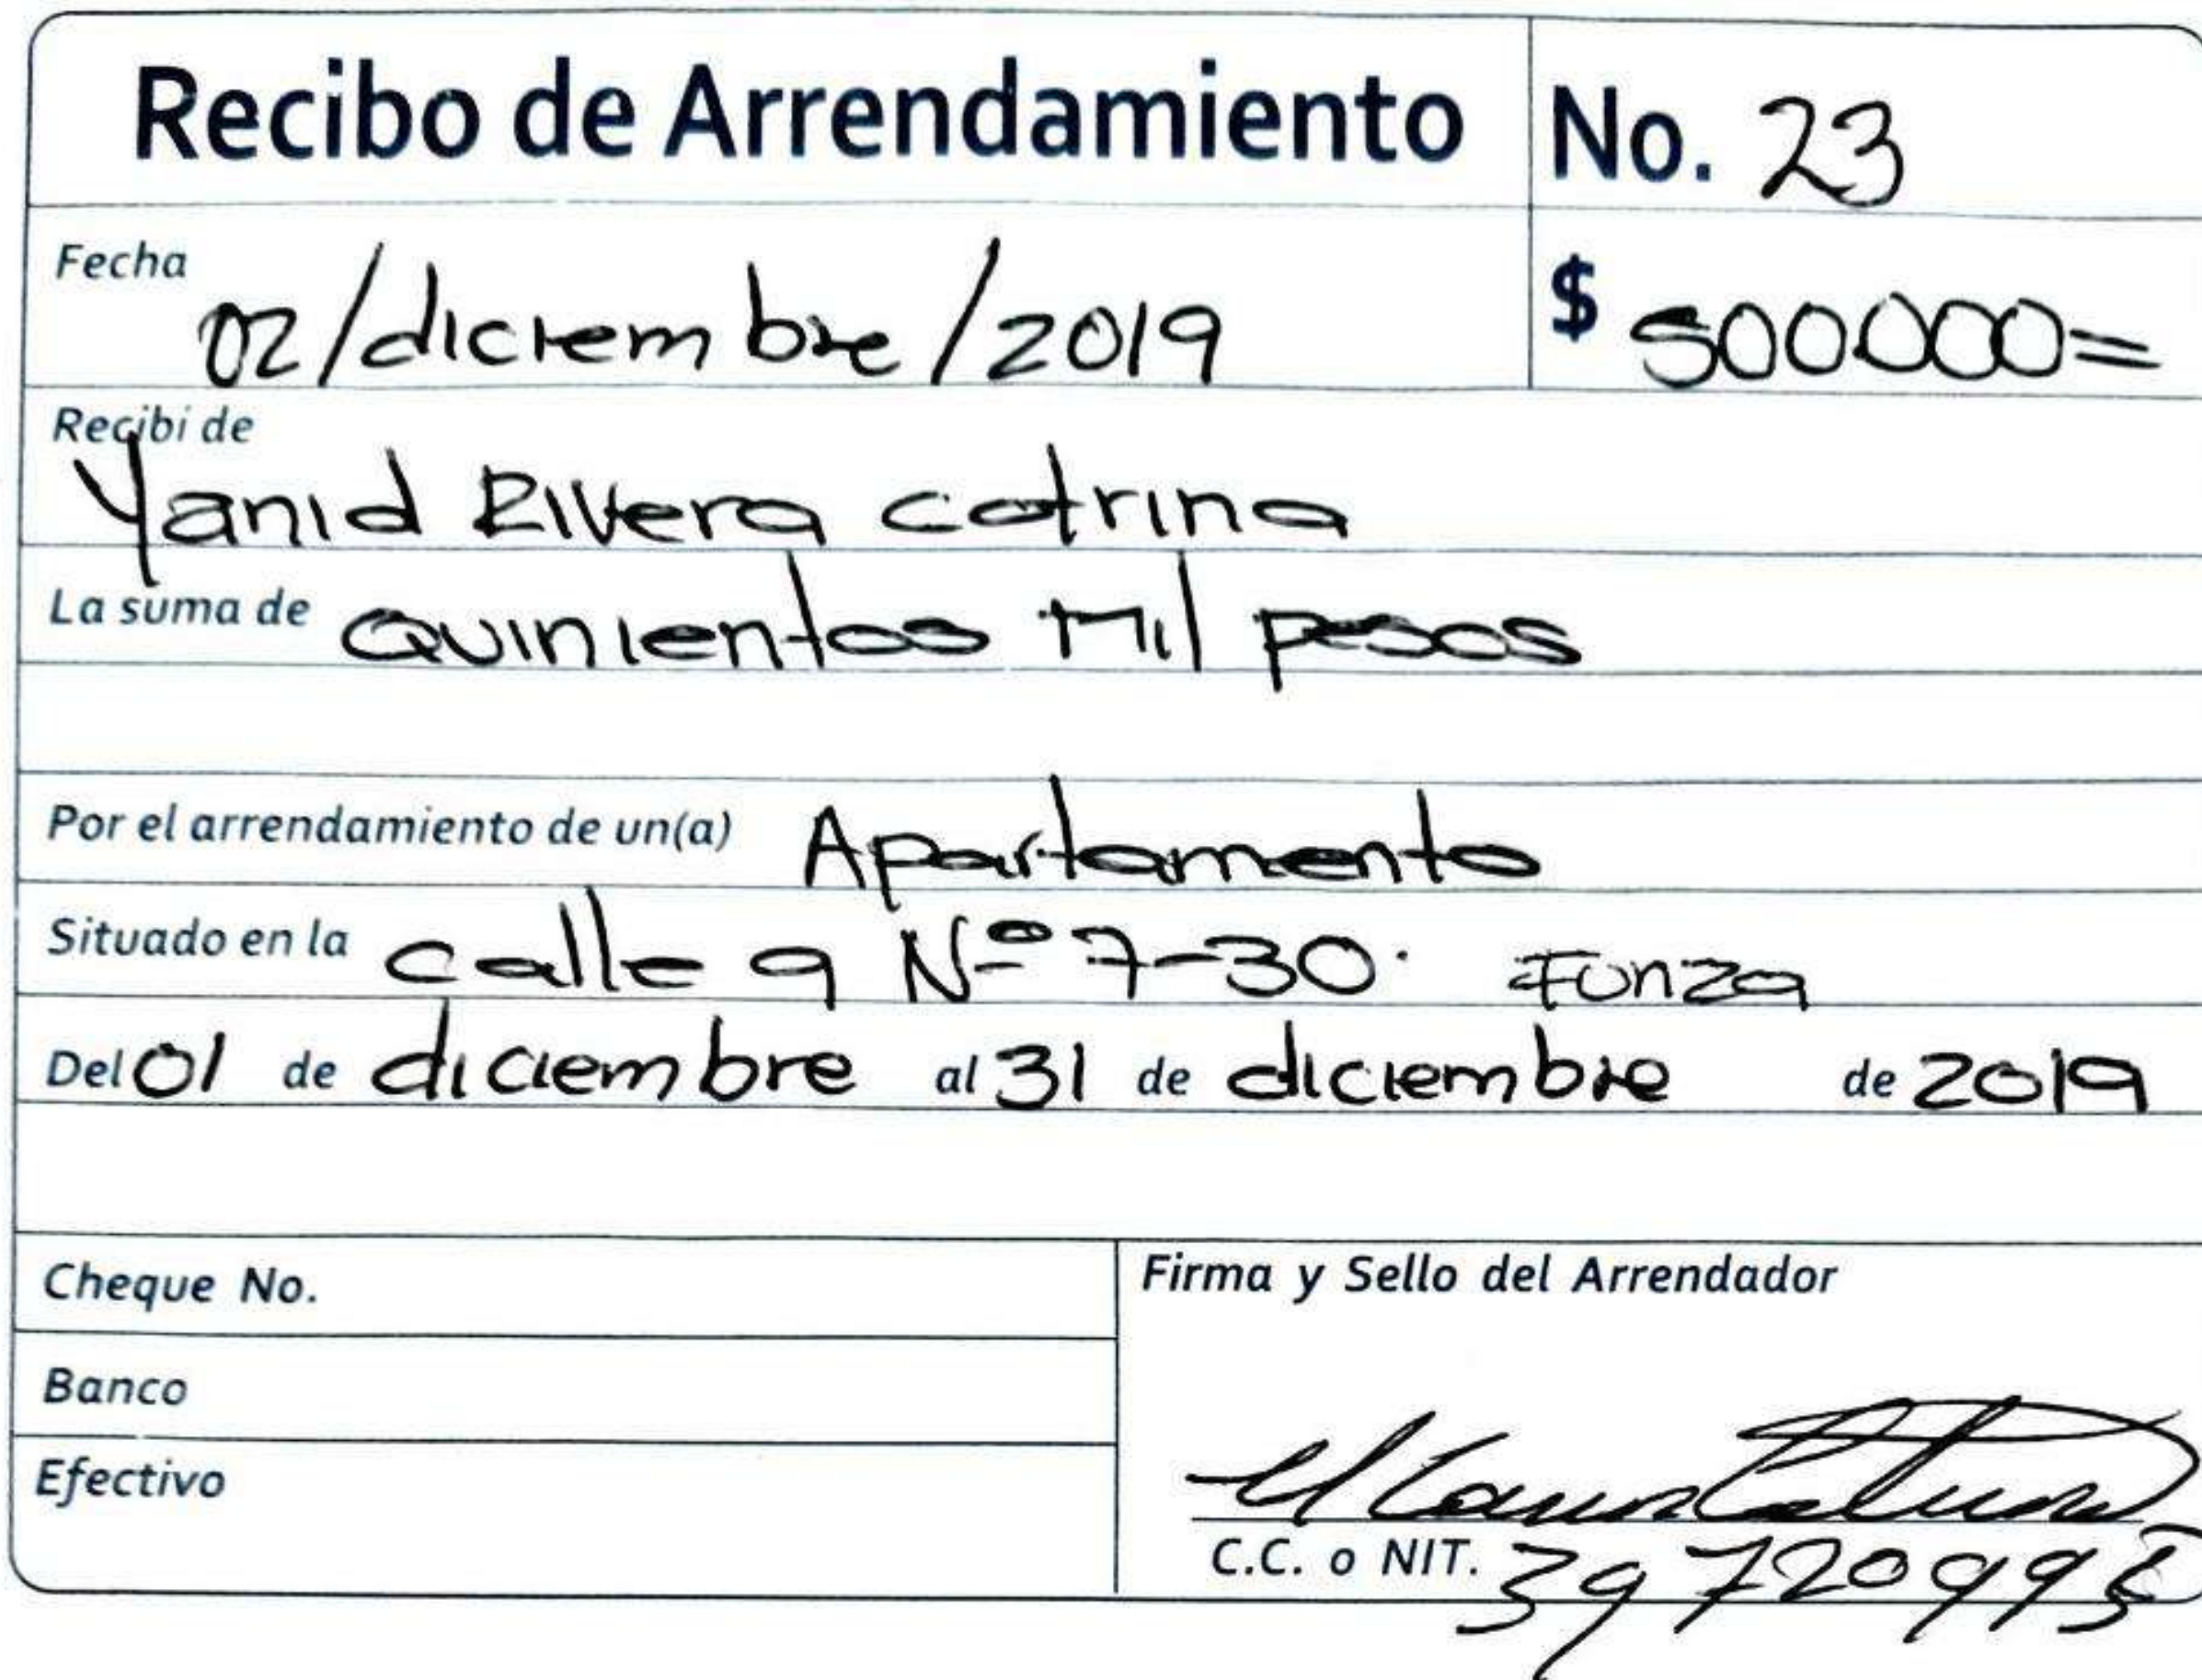 Recibo de Arrendamiento No. 23
Fecha 02/diciembre/2019 $ 500.000=
Recibí de
Yanid Rivera cotrina
La suma de Quinientos Mil pesos
Por el arrendamiento de un(a) Apartamento
Situado en la calle 9 Nº 7-30. Funza
Del 01 de diciembre al 31 de diciembre de 2019
Cheque No.
Firma y Sello del Arrendador
Banco
Efectivo
C.C. o NIT. 39720995